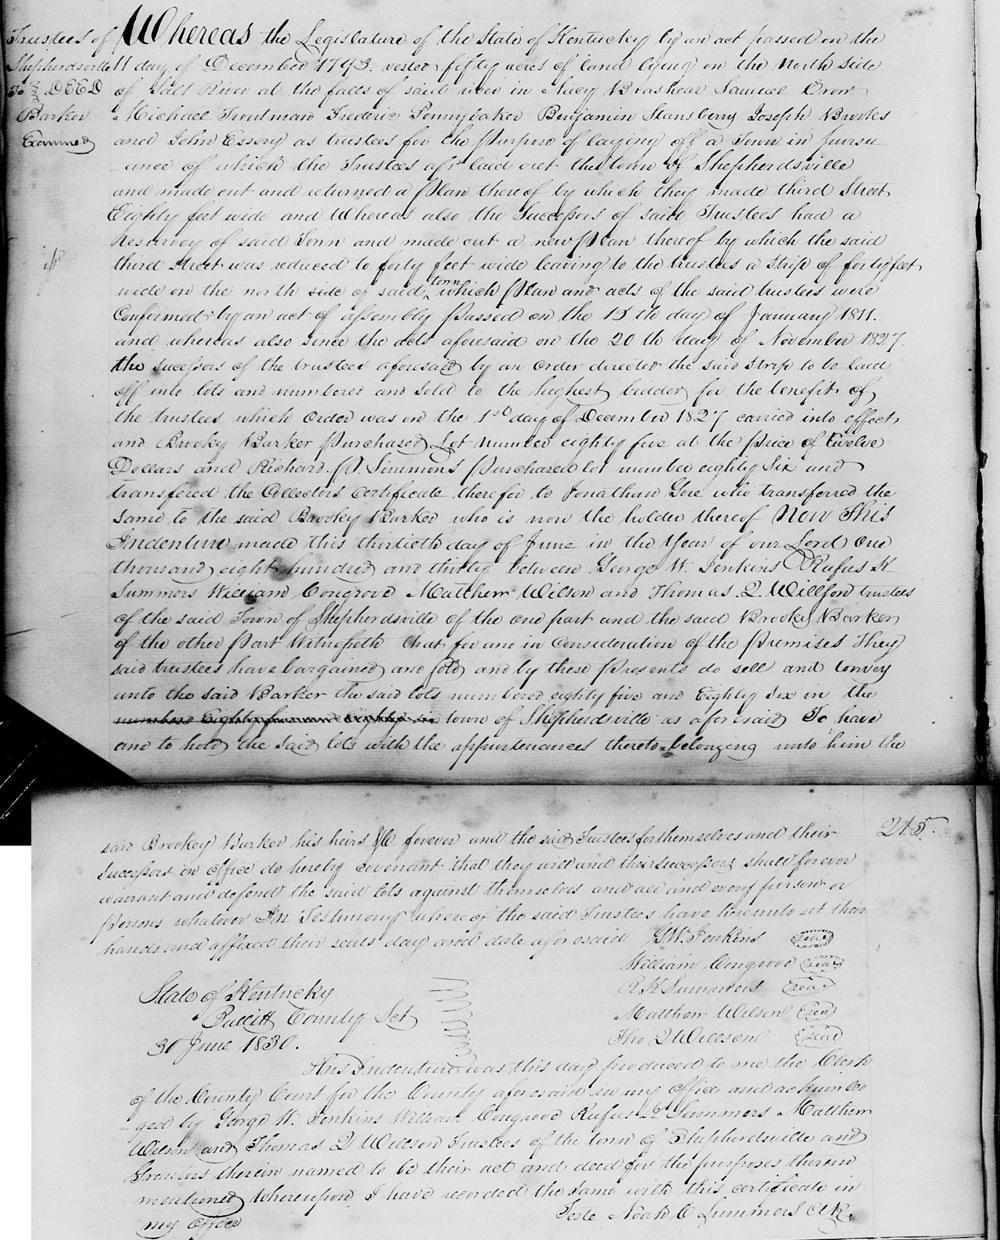 Trustees of
Shepherdsville
To DEED
Barker
Examined
Whereas the Legislature of the State of Kentucky by an act passed on the
11 day of December 1793. vested fifty acres of land lying on the North side
of Salt River at the falls of said river in Nacy Brashear Samuel Crow
Michael Troutman Frederic Pennybaker Benjamin Stansberry Joseph Brooks
and John Essory as trustees for the purpose of laying off a Town in pursu
ance of which the Trustees afsd laid out the town of Shepherdsville
and made out and returned a Plan thereof by which they made third Street
Eighty feet wide and Whereas also the Successors of said Trustees had a
Resurvey of said Town and made out a new Plan thereof by which the said
third street was reduced to forty feet wide leaving to the trustees a Strip of forty feet
wide on the north side of said town which Plan and acts of the said trustees were
Confirmed by an act of assembly passed on the 15th day of January 1811.
and whereas also since the acts aforesaid on the 20th day of November 1827
the successors of the trustees aforesaid by an order directed the said Strip to be laid
off into lots and numbered and sold to the highest bidder for the benefit of
the trustees which Order was on the 1st day of December 1827 carried into effect
and Brooky Barker Purchased Lot number eighty five at the Price of twelve
Dollars and Richard P. Simmons Purchased lot number eighty Six and
transfered the Collectors Certificate therefor to Jonathan Gore who transferred the
same to the said Brooky Barker who is now the holder thereof Now This
Indenture made this thirtieth day of June in the Year of our Lord One
thousand eight hundred and thirty between George W. Jenkins Rufus K
Summers William Congrove Matthew Wilson and Thomas Q. Willson trustees
of the said Town of Shepherdsville of the one part and the said Brooky Barker
of the other Part Witnesseth that for and in Consideration of the Premises They
said trustees have bargained and sold and by these Presents do sell and Convey
unto the said Barker the said lots numbered eighty five and Eighty Six in the
town of Shepherdsville as aforesaid To have
and to hold the said lots with the appurtenances thereto belonging unto him the
245.
said Brookey Barker his heirs &c forever and the said Trustees for themselves and their
successors in office do hereby covenant that they will and their successors shall forever
warrant and defend the said lots against themselves and all and every person or
Persons whatever In Testimony where of the said Trustees have hereunto set their
hands and affixed their seals day and date aforesaid GW. Jenkins seal
William Congrove seal
R K Summers seal
Matthew Wilson seal
Tho Q Willson seal
State of Kentucky
Bullitt County Sct
30 June 1830.
This Indenture was this day produced to me the Clerk
of the County Court for the County aforesaid in my office and acknowled
ged by George W. Jenkins William Congrove Rufus K Summers Matthew
Wilson and Thomas Q Willson Trustees of the town of Shepherdsville and
Grantors therein named to be their act and deed for the purposes therein
mentioned Whereupon I have recorded the same with this certificate in
my office Teste Noah C Summers Clk.